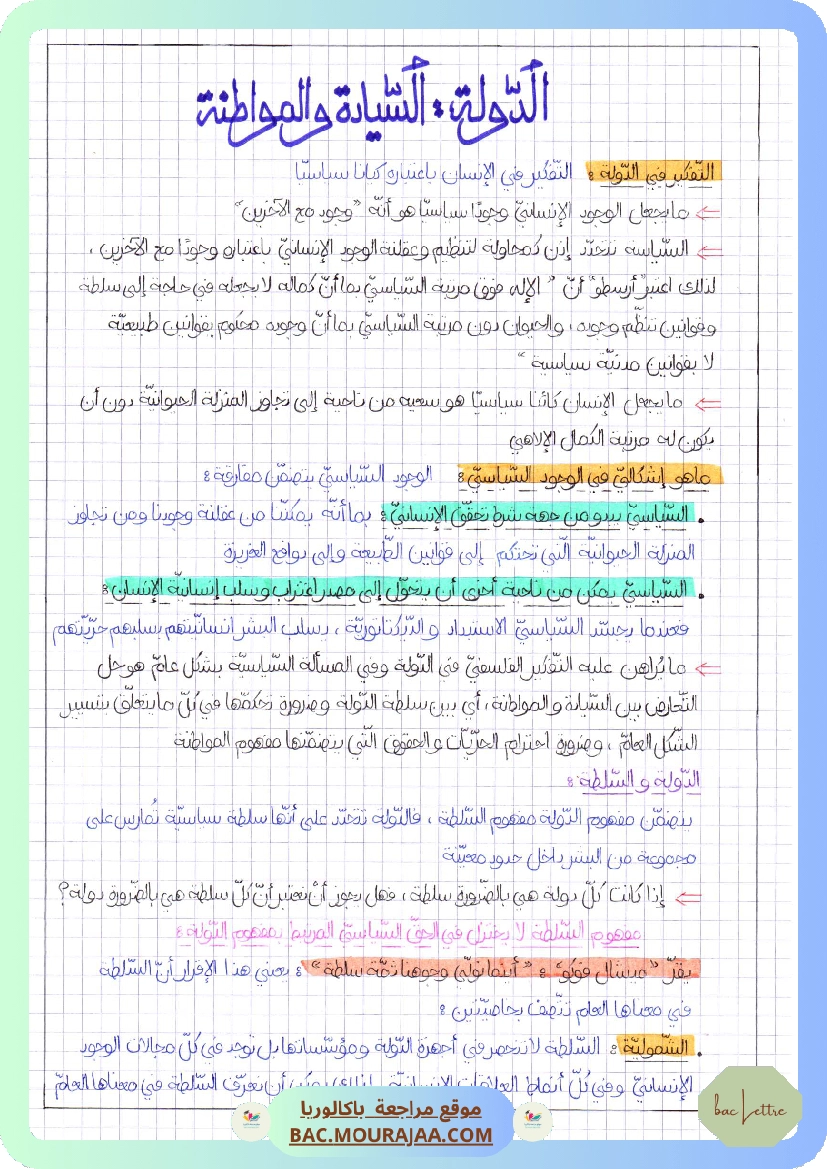 الدّولة: السّيادة والمواطنة
التّفكير في الدّولة: التّفكير في الإنسان باعتباره كيانا سياسيّا
⇐ ما يجعل الوجود الإنسانيّ وجودًا سياسيّا هو أنّه "وجود مع الآخرين"
⇐ السّياسة تتحدّد إذن كمحاولة لتنظيم وعقلنة الوجود الإنسانيّ باعتباره وجودًا مع الآخرين،
لذلك اعتبر أرسطو أنّ "الإله فوق مرتبة السّياسيّ بما أنّ كماله لا يجعله في حاجة إلى سلطة
وقوانين تنظّم وجوده، والحيوان دون مرتبة السّياسيّ بما أنّ وجوده محكوم بقوانين طبيعيّة
لا بقوانين مدنيّة سياسية"
⇐ ما يجعل الإنسان كائنا سياسيّا هو سعيه من ناحية إلى تجاوز المنزلة الحيوانيّة دون أن
يكون له مرتبة الكمال الإلاهي
ماهو إشكاليّ في الوجود السّياسيّ: الوجود السّياسيّ يتضمّن مفارقة:
. السّياسيّ يبدو من جهة شرط تحقّق الإنسانيّ: بما أنّه يمكننا من عقلنة وجودنا ومن تجاوز
المنزلة الحيوانيّة الّتي تحتكم إلى قوانين الطّبيعة وإلى دوافع الغريزة
. السّياسيّ يمكن من ناحية أخرى أن يتحوّل إلى مصدر اغتراب وسلب إنسانيّة الإنسان:
فعندما يجسّد السّياسيّ الاستبداد والدّيكتاتوريّة، يسلب البشر انسانيّتهم بسلبهم حرّيّتهم
⇐ ما يُراهن عليه التّفكير الفلسفيّ في الدّولة وفي المسألة السّياسيّة بشكل عامّ هو حل
التّعارض بين السّيادة والمواطنة، أي بين سلطة الدّولة وضرورة تحكمّها في كلّ ما يتعلّق بتسيير
الشّكل العامّ، وضرورة احترام الحرّيّات والحقوق الّتي يتضمّنها مفهوم المواطنة
الدّولة والسّلطة:
يتضمّن مفهوم الدّولة مفهوم السّلطة، فالدّولة تتحدّد على أنّها سلطة سياسيّة تُمارس على
مجموعة من البشر داخل حدود معيّنة
⇐ إذا كانت كلّ دولة هي بالضّرورة سلطة، فهل يجوز أنْ نعتبر أنّ كلّ سلطة هي بالضّرورة دولة؟
مفهوم السّلطة لا يختزل في الحقّ السّياسيّ المرتبط بمفهوم الدّولة:
يقرّ "ميشال فوكو": "أينما نولّي وجوهنا ثمّة سلطة": يعني هذا الإقرار أنّ السّلطة
في معناها العام تتّصف بخاصيّتين:
. الشّموليّة: السّلطة لا تنحصر في أجهزة الدّولة ومؤسّساتها بل توجد في كلّ مجالات الوجود
الإنسانيّ وفي كُلّ أنماط العلاقات الإنسانيّة، لذلك يمكن أن نعرّف السّلطة في معناها العامّ
موقع مراجعة باكالوريا
BAC.MOURAJAA.COM
bac Lettre